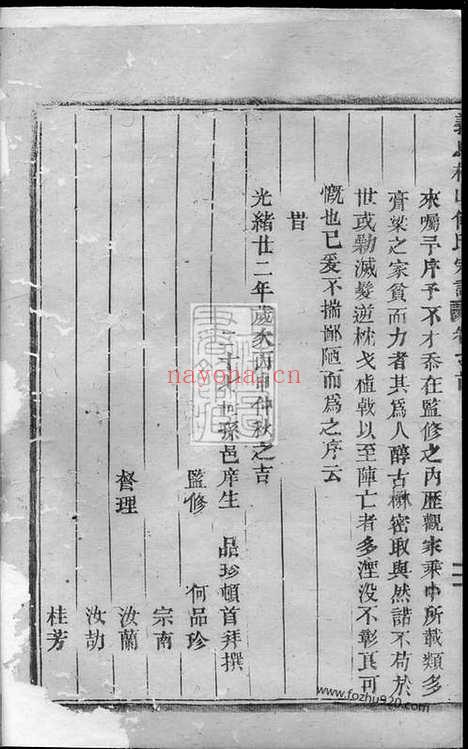 來囑予序予不才忝在監修之內歷觀家乘中所載類多
膏梁之家貧而力者其為人醇古樕密取與然諾不苟於
世或勦滅髮逆枕戈植戟以至陣亡者多湮沒不彰真可
慨也已爰不揣鄙陋而為之序云
旹
光緒廿二年歲次丙申仲秋之吉
孫邑庠生 品珍頓首拜撰
監修 何品珍
宗南
督理 汝蘭
汝劼
桂芳
nayona.cn
www.fozhu920.com